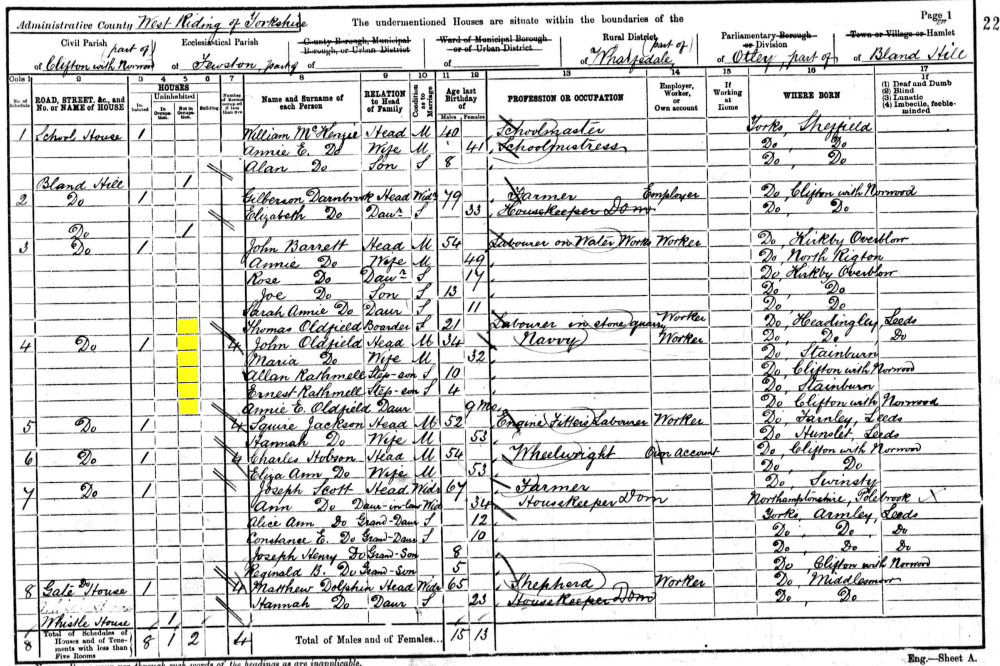 Administrative County West Riding of Yorkshire The undermentioned Houses are situate within the boundaries of the Page 1 22
Civil Parish Ecclesiastical Parish County Borough, Municipal Borough, or Urban District Ward of Municipal Borough or of Urban District Rural District Parliamentary Borough or Division Town or Village or Hamlet
part of of Clifton with Norwood of Fewston, part of of of part of of Wharfedale of Otley, part of of Bland Hill
Cols 1 2 3 4 5 6 7 8 9 10 11 12 13 14 15 16 17
No. of Schedule ROAD, STREET, &c., and No. or NAME of HOUSE HOUSES Inhabited Uninhabited In Occupation Not in Occupation Building Number of Rooms occupied if less than five Name and Surname of each Person RELATION to Head of Family Condition as to Marriage Age last Birthday of Males Females PROFESSION OR OCCUPATION Employer, Worker, or Own account If Working at Home WHERE BORN If (1) Deaf and Dumb (2) Blind (3) Lunatic (4) Imbecile, feeble-minded
1 School House 1 William McKenzie Head M 40 Schoolmaster Yorks, Sheffield
Annie E. Do Wife M 41 Schoolmistress Do, Do
Alan Do Son S 8 Do, Do
Bland Hill 1
2 Do 1 Gilberson Darnbrook Head Widr 79 Farmer Employer Do, Clifton with Norwood
Elizabeth Do Daur S 33 Housekeeper Dom Do, Do
Do 1
3 Do 1 John Barrett Head M 54 Labourer on Water Works Worker Do, Kirkby Overblow
Annie Do Wife M 49 Do, North Rigton
Rose Do Daur S 17 Do, Kirkby Overblow
Joe Do Son S 13 Do, Do
Sarah Annie Do Daur S 11 Do, Do
Thomas Oldfield Boarder S 21 Labourer in stone quarry Worker Do, Headingley, Leeds
4 Do 1 4 John Oldfield Head M 34 Navvy Worker Do, Do, Do
Maria Do Wife M 32 Do, Stainburn
Allan Rathmell Step-son S 10 Do, Clifton with Norwood
Ernest Rathmell Step-son S 4 Do, Stainburn
Annie E. Oldfield Daur 9 Mo Do, Clifton with Norwood
5 Do 1 4 Squire Jackson Head M 52 Engine Fitters Labourer Worker Do, Farnley, Leeds
Hannah Do Wife M 53 Do, Hunslet, Leeds
6 Do 1 4 Charles Hobson Head M 54 Wheelwright Own account Do, Clifton with Norwood
Eliza Ann Do Wife M 53 Do, Do
7 Do 1 Joseph Scott Head Widr 67 Farmer Do, Swinsty
Ann Do Daur-in-law Wid 34 Housekeeper Dom Northamptonshire, Polebrook
Alice Ann Do Grand-Daur S 12 Yorks, Armley, Leeds
Constance E. Do Grand-Daur S 10 Do, Do, Do
Joseph Henry Do Grand-Son 8 Do, Do, Do
Reginald B. Do Grand-Son 5 Do, Clifton with Norwood
8 Gate House Do 1 4 Matthew Dolphin Head Widr 65 Shepherd Worker Do, Middlesmoor
Hannah Do Daur S 23 Housekeeper Dom Do, Do
Whistle House 1
8 Total of Schedules of Houses and of Tenements with less than Five Rooms 8 1 2 4 Total of Males and of Females... 15 13
Eng.—Sheet A.